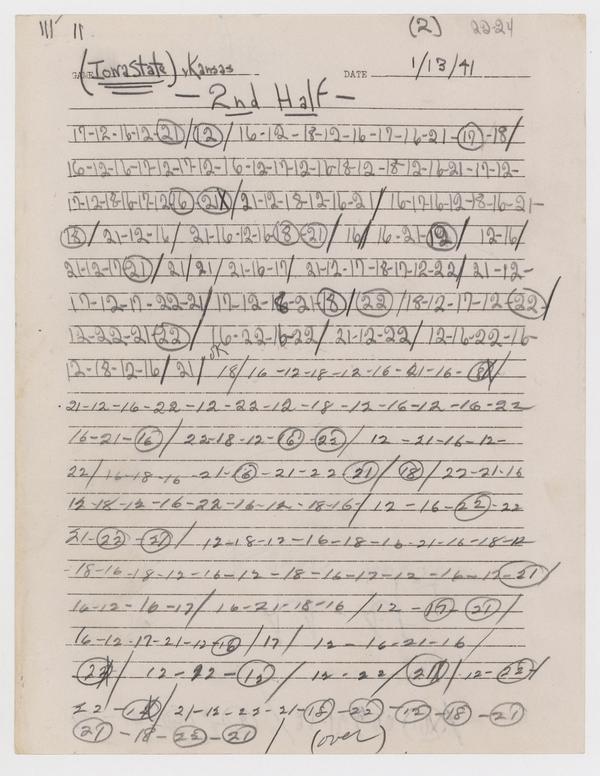 (2) 22-24
GAME (Iowa State) v Kansas DATE 1/13/41
- 2nd Half -
17-12-16-12-21/12/16-12-18-12-16-17-16-21-17-18/
16-12-16-17-12-17-12-16-12-17-12-16-18-12-18-12-16-21-17-12-
17-12-18-16-17-12-16-21/21-12-18-12-16-21/16-17-16-12-18-16-21-
18/21-12-16/21-16-12-16-18-21/16/16-21-12/12-16/
21-12-17-21/21/21/21-16-17/21-12-17-18-17-12-22/21-12-
17-12-17-22-21/17-12-8-21-18/22/18-12-17-12-22/
12-22-21-22/16-22-16-22/21-12-22/12-16-22-16-
12-18-12-16/21/18/16-12-18-12-16-21-16-
OK
21-12-16-22-12-22-12-18-12-16-12-16-22
16-21-16/22-18-12-16-22/12-21-16-12-
22/16-18-16-21-16-21-22-21/18/22-21-16
12-18-12-16-22-16-12-18-16/12-16-22-22
21-22-21/12-18-12-16-18-16-21-16-18-12
-18-16-18-12-16-12-18-16-12-12-16-12-21/
16-12-16-17/16-21-18-16/12-17-21/
16-12-17-21-12-16/17/12-16-21-16/
22/12-22-12/12-22/21/12-22/
22-12/21-12-22-21-18-22-12-18-21
21-18-22-21/(over)